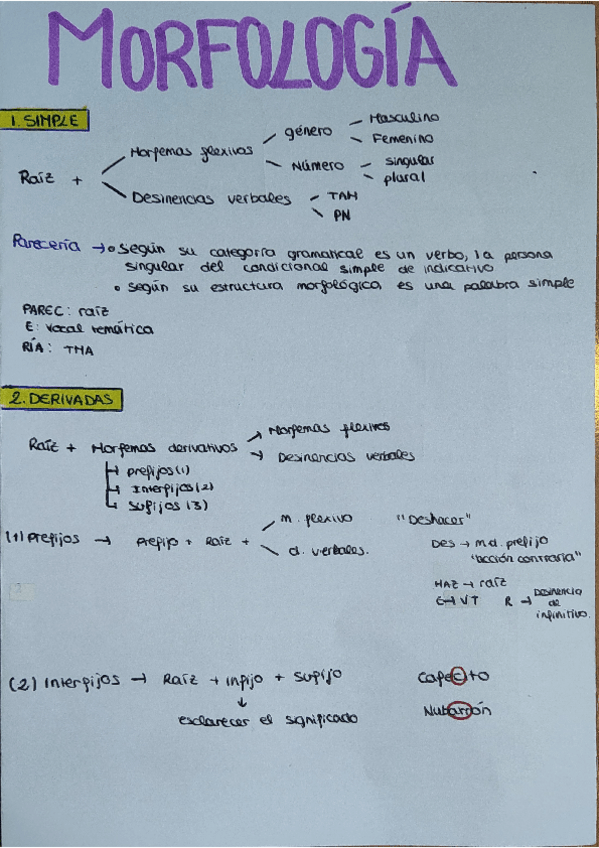 MORFOLOGÍA
1. SIMPLE
Raíz +
Morfemas flexivos
género
Masculino
Femenino
Número
singular
plural
Desinencias verbales
TAM
PN
Parecería → • Según su categoría gramatical es un verbo, 1a persona
singular del condicional simple de indicativo
• Según su estructura morfológica es una palabra simple
PAREC: raíz
E: vocal temática
RÍA: TMA
2. DERIVADAS
Raíz + Morfemas derivativos
Morfemas flexivos
Desinencias verbales
prefijos (1)
Interfijos (2)
Sufijos (3)
(1) Prefijos → Prefijo + Raíz +
m. flexivo
d. verbales.
"Deshacer"
DES → m.d. prefijo
"acción contraria"
HAZ → raíz
E → VT R → Desinencia
de
infinitivo.
(2) Interfijos → Raíz + infijo + sufijo
↓
esclarecer el significado
Cafecito
Nubarrón